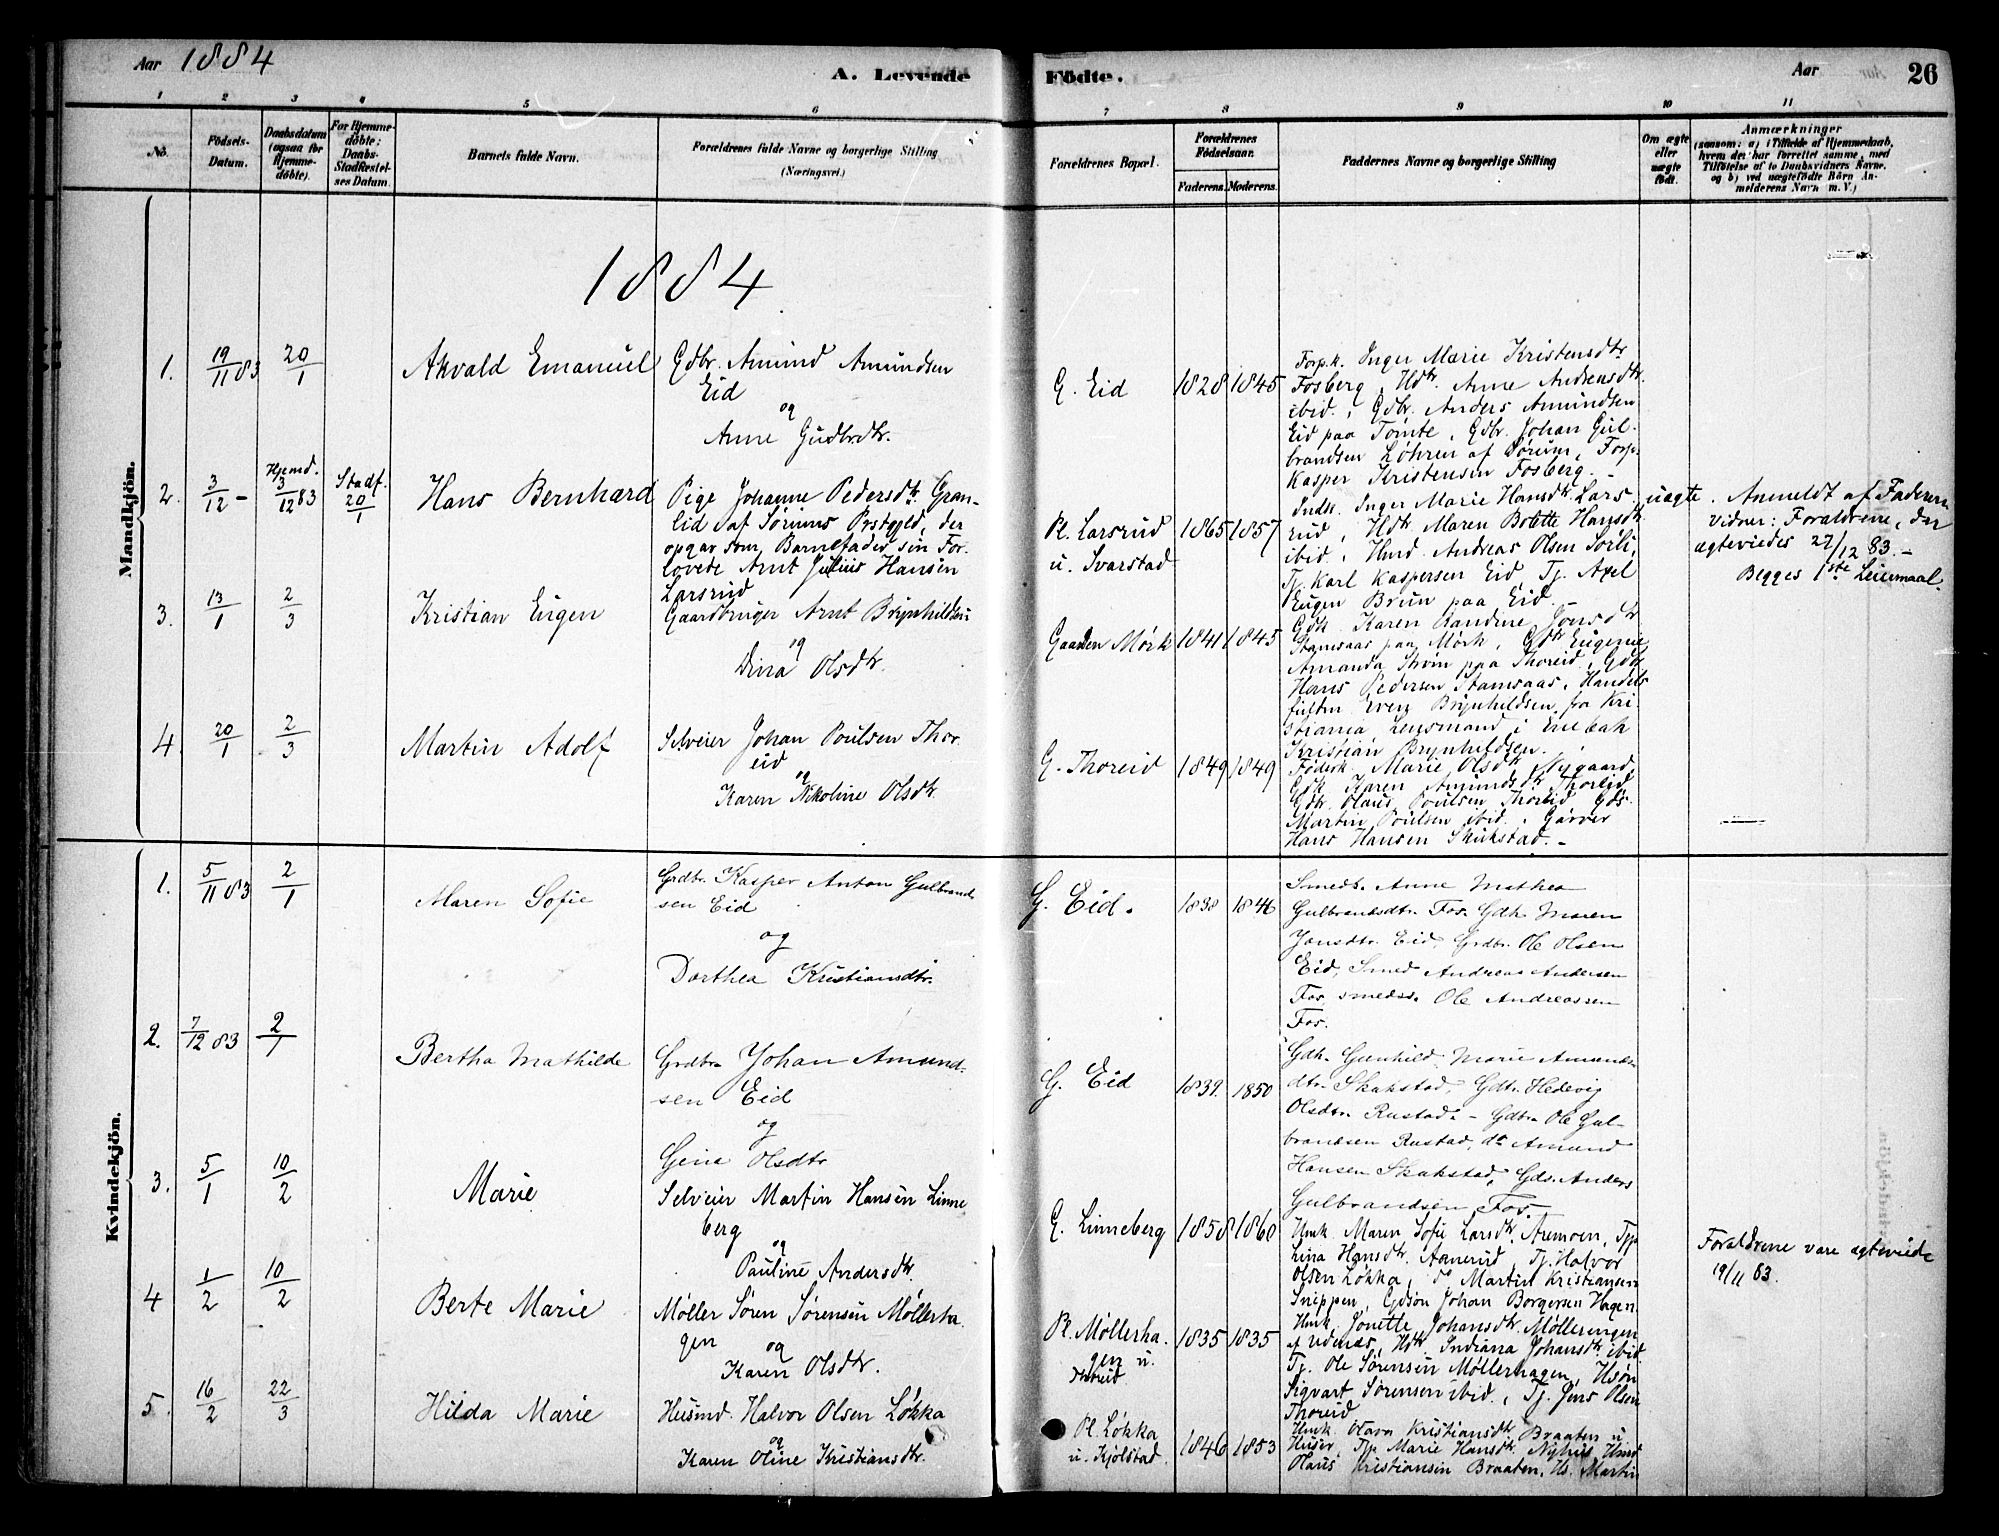 Aar 1884
A. Levende Födte.
Aar
26
1 2 3 4 5 6 7 8 9 10 11
No.
Födsels-Datum.
Daabsdatum (ogsaa for Hjemme-döbte).
For Hjemme-döbte: Daabs-Stadfæstel-ses Datum.
Barnets fulde Navn.
Forældrenes fulde Navne og borgerlige Stilling (Næringsvei.)
Forældrenes Bopæl.
Forældrenes Födselsaar.
Faderens. Moderens.
Faddernes Navne og borgerlige Stilling
Om ægte eller uægte födt.
Anmærkninger
(saasom: a) i Tilfælde af Hjemmedaab,
hvem der har forrettet samme, med
Tilföielse af to Daabsvidners Navne,
og b) ved uægtefödte Börn An-
melderens Navn m. V.)
1884
Mandkjön.
1. 19/11 83 20/1 Akvald Emanuel
Gdbr. Amund Amundsen
Eid
og
Anne Gudbrdtr.
G. Eid 1828 1845
Forpk. Inger Marie Kristensdtr
Fosberg, Hdtr. Anne Andreasdtr.
ibid., Gdbr. Anders Amundsen
Eid paa Tomte, Gdbr. Johan Gul-
brandsen Løhren af Sørum, Forp.
Kasper Kristensen Fosberg.
2. 3/12 - Hjemd. 3/12 83 Stadf. 20/1 Hans Bernhard
Pige Johanne Pedersdtr. Gran-
lid af Sørums Prstgjeld, der
opgav som Barnefader sin For-
lovede Arnt Julius Hansen
Larsrud
Pl. Larsrud
u. Svarstad
1865 1857
Indk. Inger Marie Hansdtr. Lars-
rud, Hdtr. Maren Bolette Hansdtr.
ibid., Hmd. Andreas Olsen Sorli,
Tj. Karl Kaspersen Eid, Tj. Axel
Eugen Brun paa Eid.
uægte. Anmeldt af Faderen
Vidner: Forældrene, der
ægteviedes 27/12 83. -
Begges 1ste Leiermaal.
3. 13/1 2/3 Kristian Eugen
Gaardbruger Arnt Brynhildsen
og
Dina Olsdtr.
Gaarden Mørk 1841 1845
Gdk. Karen Randine Jonsdtr
Stamsaas paa Mørk, Gdtr Eugenie
Amanda Strøm paa Thoreid, Gdbr
Hans Pedersen Stamsaas, Handels
fuldm. Even Brynhildsen fra Kri-
stiania, Lensmand i Enebak
Kristian Brynhildsen.
4. 20/1 2/3 Martin Adolf
Selveier Johan Poulsen Thor-
eid
og
Karen Nikoline Olsdtr.
G. Thoreid 1849 1849
Føderk. Marie Olsdtr. Nygaard,
Gdk. Karen Amundsdtr Thoreid,
Gdbr. Olaus Poulsen Thoreid, Gds.
Martin Poulsen ibid., Garver
Hans Hansen Skukstad. -
Kvindekjön.
1. 5/11 83 2/1 Maren Sofie
Grdbr. Kasper Anton Gulbrand-
sen Eid
og
Dorthea Kristiansdtr.
G. Eid. 1838 1846
Smeds. Anne Mathea
Gulbrandsdtr. Fos. Gdk. Maren
Jonsdtr. Eid, Grdbr. Ole Olsen
Eid, Smed Andreas Andersen
Fos, smedss. Ole Andreassen
Fos.
2. 7/12 83 2/1 Bertha Mathilde
Grdbr. Johan Amund-
sen Eid
og
Gina Olsdtr
G. Eid 1839. 1850
Gdk. Gunhild Marie Amunds-
dtr. Skakstad, Gdtr. Hedevig
Olsdtr. Rustad. - Gdbr. Ole Gul-
brandsen Rustad, do Amund
Hansen Skakstad, Gds. Anders
Gulbrandsen Fos.
3. 5/1 10/2 Marie
Selveier Martin Hansen Linne
berg
og
Pauline Andersdtr.
G. Linneberg 1858 1860
Hmk. Maren Sofie Larsdtr. Aremoen, Tjp.
Lina Hansdtr. Aanerud, Tj. Halvor
Olsen Løkka, do Martin Kristiansen
Snippen, Gdsøn Johan Borgersen Hagen.
Forældrene vare ægteviede
19/11 83.
4 1/2 10/2 Berte Marie
Møller Søren Sørensen Møllerha-
gen
og
Karen Olsdtr.
Pl. Møllerha-
gen u.
Thoreid
1835 1835
Hmk. Jonette Johansdtr. Mølleringen
af Udenæs, Hdtr. Indiana Johansdtr. ibid.
Tj. Ole Sørensen Møllerhagen, Hsøn
Sigvart Sørensen ibid., Tj. Jens Olsen
Thoreid
5. 16/2 22/3 Hilda Marie
Husmd. Halvor Olsen Løkka
og
Karen Oline Kristiansdtr.
Pl. Løkka
u. Kjølstad.
1846 1853
Hmk. Olava Kristiansdtr. Braaten u
Huser, Tjp. Marie Hansdtr. Nyhus, Hmd
Olaus Kristiansen Braaten, Hs. Martin